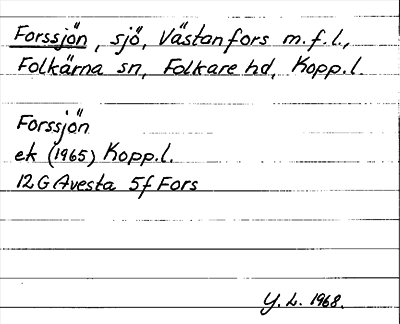 Forssjön, sjö, Västanfors m.f.l.,
Folkärna sn, Folkare hd, Kopp.l.
Forssjön
ek (1965) Kopp.l.
12G Avesta 5f Fors
Y. L. 1968.